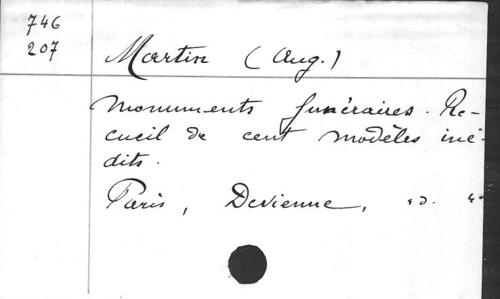 746
207
Martin (Aug.)
Monuments funéraires. Re-
cueil de cent modèles iné-
dits.
Paris, Devienne, s.d. 4°